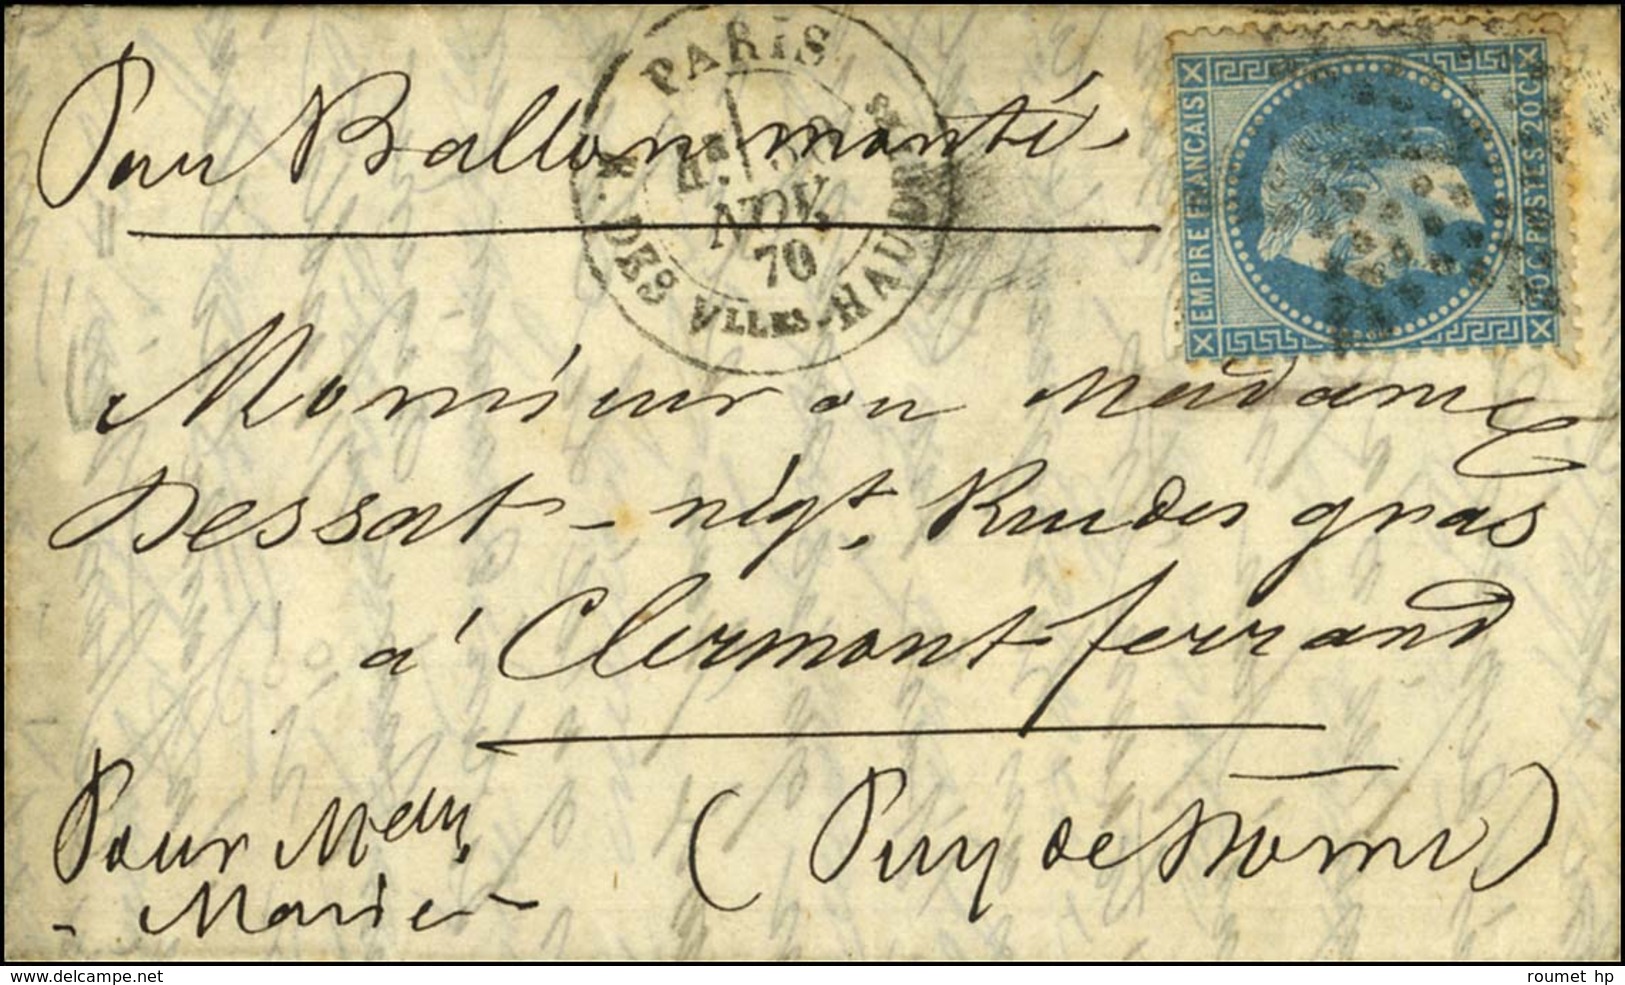 Par Ballon monté.
PARIS
NOV.
70
R. DES VLLES-HAUDRTES
EMPIRE FRANCAIS
20C POSTES 20C
Monsieur ou Madame
Dessat - négt. Rue des gras
à Clermont ferrand
(Puy de Dome)
Pour Melle
- Marie -
delcampe.net
roumet hp